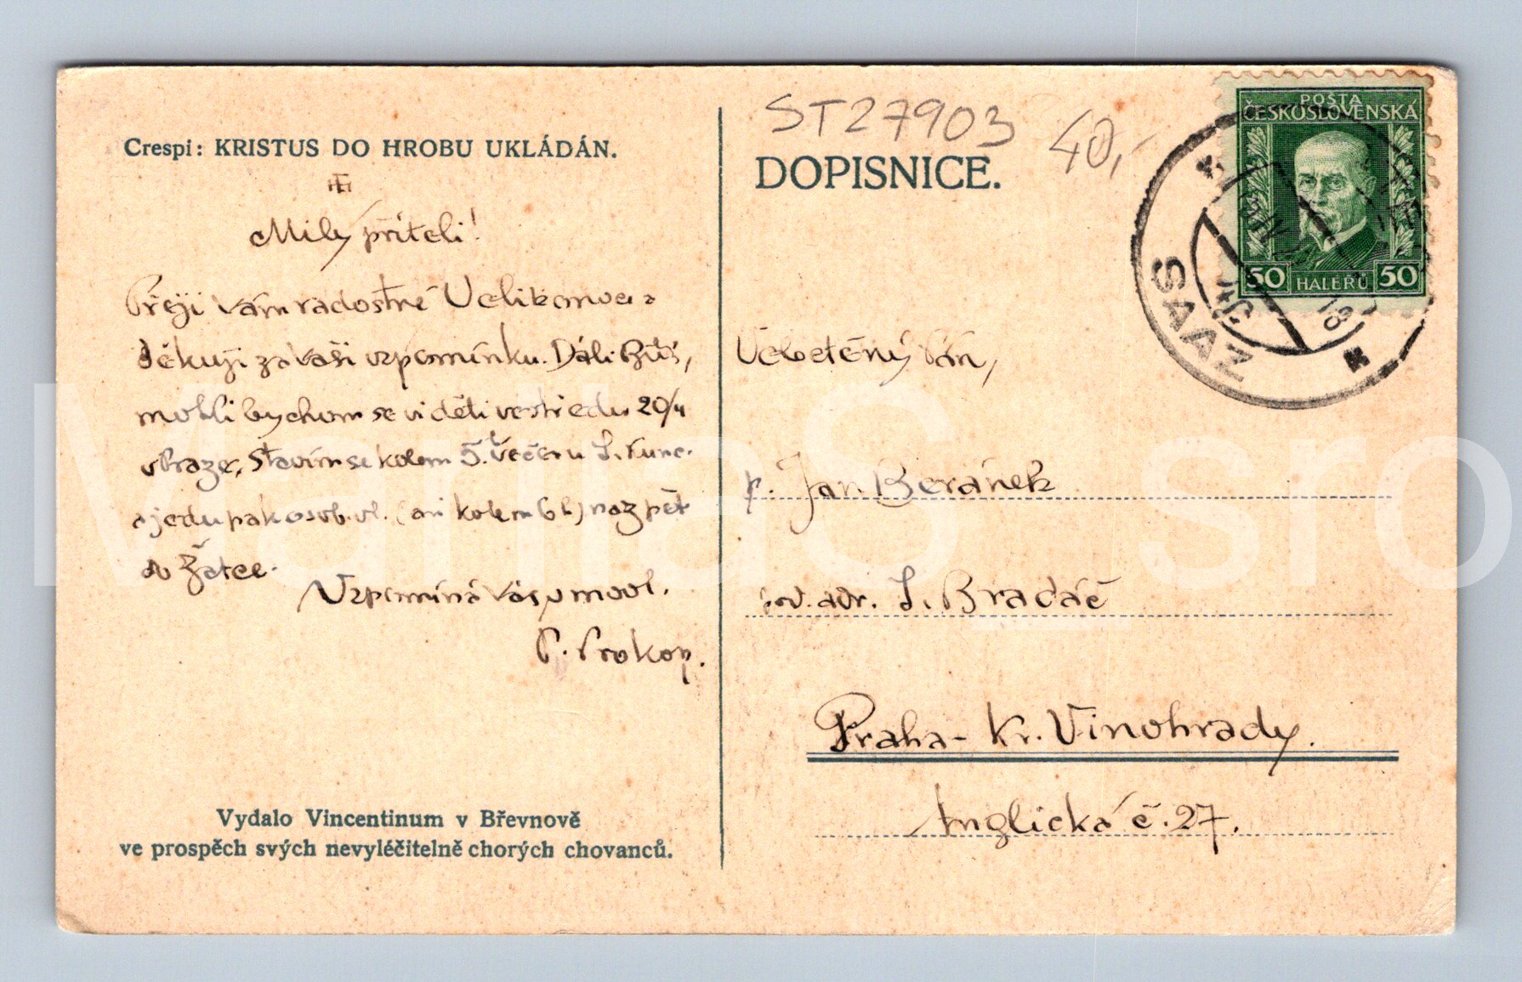 Crespi: KRISTUS DO HROBU UKLÁDÁN.
Milý příteli!
Přeji Vám radostné Velikonoce a
děkuji za Vaši vzpomínku. Dá-li Bůh,
mohli bychom se viděti ve středu 20/4
v Praze, Stavím se kolem 5. h večer u
a jedu pak osob. vl. (asi kolem 6 h) nazpět
do Žatce.
Vzpomíná Vás
P. Prokop.
Vydalo Vincentinum v Břevnově
ve prospěch svých nevyléčitelně chorých chovanců.
ST27903 40,-
DOPISNICE.
POŠTA
ČESKOSLOVENSKÁ
50 HALÉŘŮ 50
SAAZ
Velectěný Pán,
p. Jan Beránek
adr. L. Bradáč
Praha - Kr. Vinohrady.
Anglická č. 27.